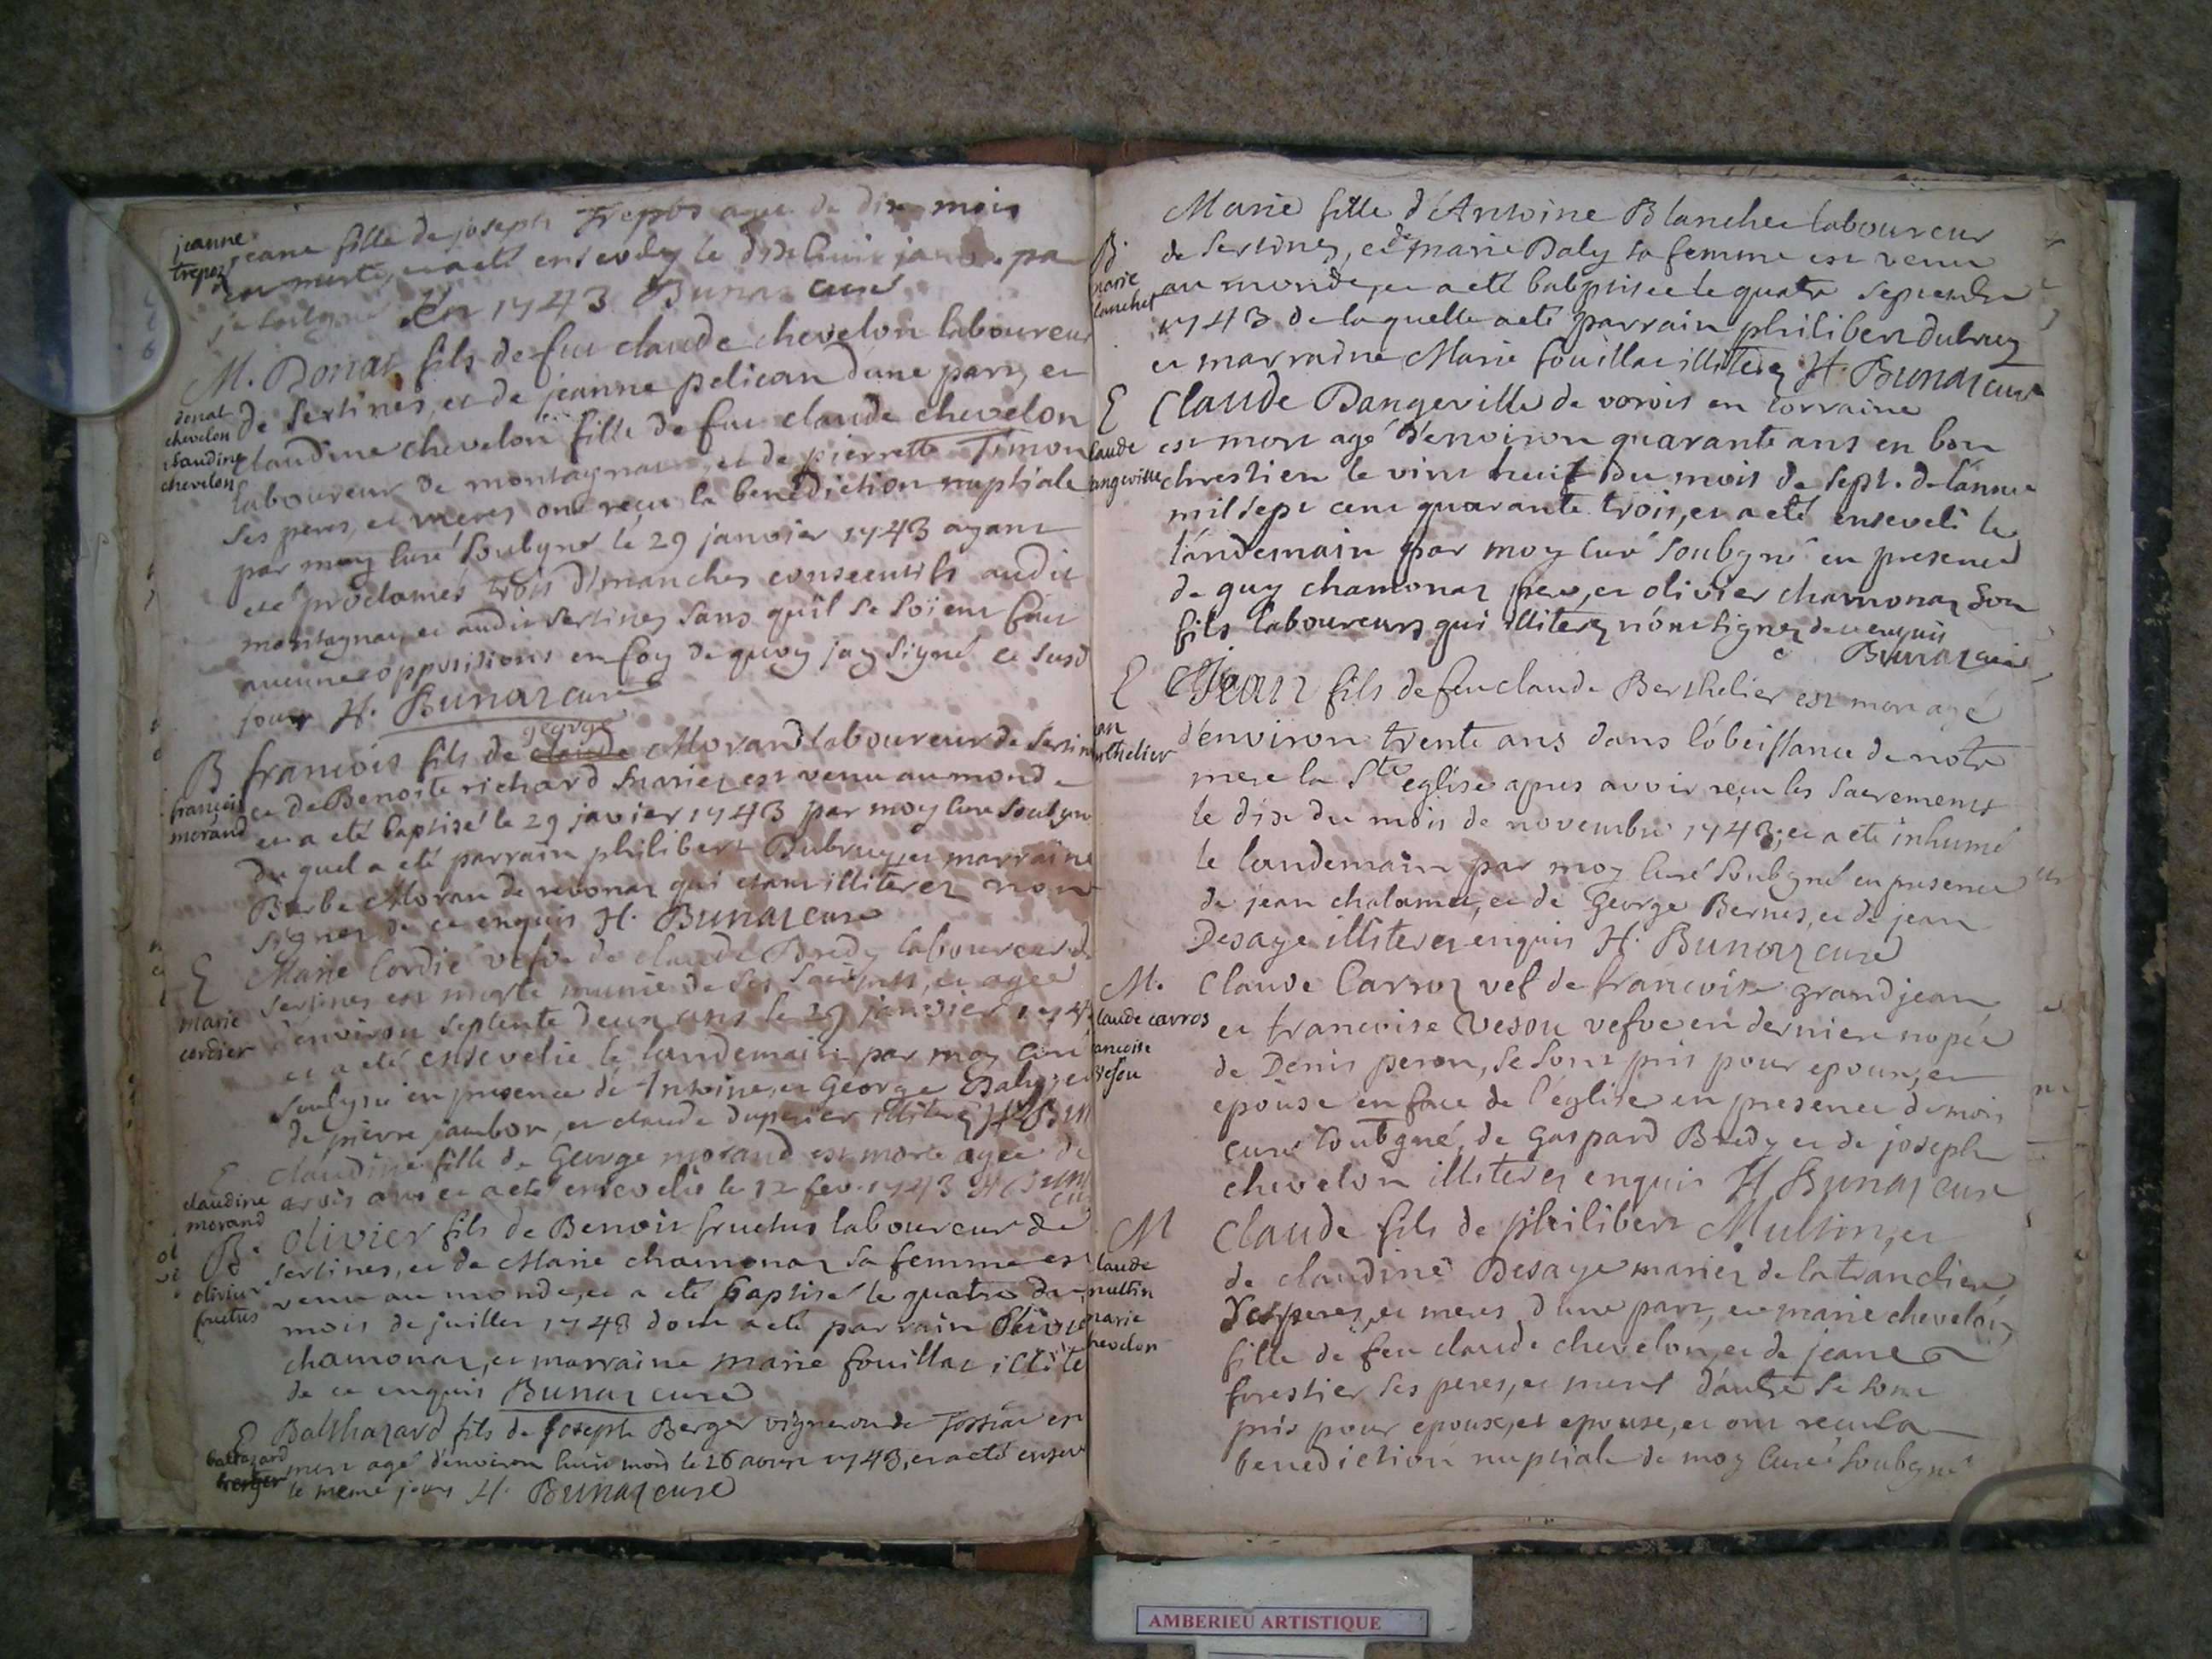 jeanne
trepoz
jeane fille de joseph Trepos agee de dix mois
est morte, et a eté ensevely le dixhuit janv. pa
je soubgné En 1743 Bunaz curé
M. Donat fils de feu claude chevelon laboureur
donat
chevelon
claudine
chevelon
de Sertines, et de jeanne pelican d'une part, et
claudine chevelon fille de feu claude chevelon
laboureur de montagnat, et de pierrette Timon
ses peres, et meres ont reçu la benediction nuptiale
par moy curé soubgné le 29 janvier 1743 ayant
eté proclamés trois dimanches consecutifs audit
montagnat, et audit Sertines sans qu'il se soient fait
aucunes oppositions en foy de quoy jay signé ce susd
jour H. Bunaz curé
george
B francois fils de claude Morand laboureur de Sertin
francois
morand
et de Benoite richard mariez est venu au monde
et a eté baptisé le 29 javier 1743 par moy curé soubgné
du quel a eté parrain philibert Dubruy, et marraine
Barbe Moran de revonaz qui etant illiterez non
signez de ce enquis H. Bunaz curé
E Marie Cordié vefve de claude Bredy laboureur de
marie
cordier
Sertines est morte munie de ses sacrements, et agee
d'environ septente deux ans le 29 janvier 174
et a eté ensevelie le landemain par moy curé
soubgné en presence de Antoine, et George Daly, et
de pierre jambon, et claude duperier illiterez H Bun
E claudine fille de George morand est morte agee de
claudine
morand
trois ans et a eté ensevelie le 12 fev. 1743 H Bun
cu
B. olivier fils de Benoit fructus laboureur de
olivier
fructus
Sertines, et de Marie chamonaz sa femme est
venu au monde, et a eté baptisé le quatre du
mois de juillet 1743 dont a eté parrain Olivie
chamonaz, et marraine marie fouillat illite
de ce enquis Bunaz curé
E Balthazard fils de Joseph Berger vigneron de Jossiat est
baltazard
berger
mort agé d'environ huit mois le 26 aoust 1743, et a eté ensev
le meme jours H. Bunaz curé
Marie fille d'Antoine Blanchet laboureur
B.
marie
lanchet
de Sertines, et de marie Daly sa femme est venu
au monde, et a eté babptisee le quatr septembre
1743 de laquelle a eté parrain philibert dubruy
et marraine Marie fouillat illiterez H. Bunaz curé
E Claude Dangeville de vorois en lorraine
laude
angeville
est mort agé d'environ quarante ans en bon
chrestien le vint huit du mois de sept. de l'annee
mil sept cent quarante trois, et a eté enseveli le
l'andemain par moy curé soubgné en presence
de guy chamonaz pere, et olivier chamonaz son
fils laboureurs qui illiterez n'ont signez de ce enquis
Bunaz curé
E Jean fils de feu claude Berthelier est mort agé
an
rthelier
d'environ trente ans dans l'obeissance de notre
mere la Ste eglise apres avoir reçu les sacrements
le dix du mois de novembre 1743, et a eté inhumé
le landemain par moy curé soubgné en presence
de jean chalamet, et de George Bernes, et de jean
Desaye illiterez enquis H. Bunaz curé
M. Claude Carroz vef de francoise grandjean
laude carros
ancoise
vesou
et francoise Vesou vefve en derniere nopce
de Denis peron, se sont pris pour epoux, et
epouse en face de l'eglise en presence de moi
curé soubgné, de Gaspard Bredy et de joseph
chevelon illiterez enquis H Bunaz curé
M Claude fils de philibert Multin, et
laude
multin
marie
hevelon
de claudine Desaye mariez de la tranclier
Ses peres, et meres d'une part, et marie chevelon,
fille de feu claude chevelon, et de jeane
forestier ses peres, et meres d'autre se sont
pris pour epoux, et epouse, et ont recu la
benediction nuptiale de moy curé soubgné
AMBERIEU ARTISTIQUE